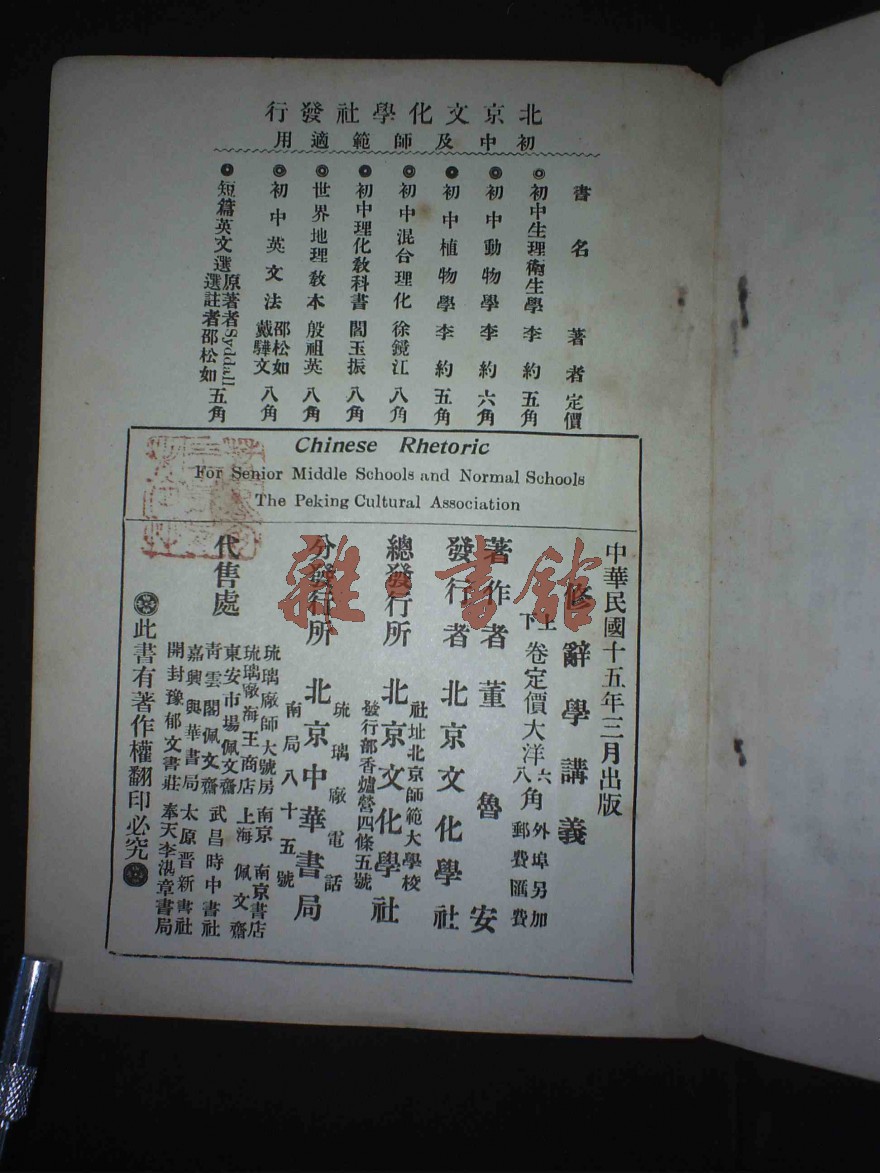 北京文化學社發行
初中及師範適用
書名 著者 定價
◎初中生理衛生學 李約 五角
◎初中動物學 李約 六角
◎初中植物學 李約 五角
◎初中混合理化 徐鏡江 八角
◎初中理化教科書 閻玉振 八角
◎世界地理教本 殷祖英 八角
◎初中英文法 邵松如 戴驊文 八角
◎短篇英文選 原著者Syddall 選註者邵松如 五角
Chinese Rhetoric
For Senior Middle Schools and Normal Schools
The Peking Cultural Association
中華民國十五年三月出版
修辭學講義
上下卷定價大洋六八角 外埠另加郵費匯費
著作者 董魯安
發行者 北京文化學社
總發行所 北京文化學社
社址北京師範大學校
發行部香爐營四條五號
分發行所 北京中華書局
琉璃廠電話
南局八十五號
代售處
琉璃廠師大號房 南京 南京書店
琉璃廠海王商店 上海 佩文齋
東安市場佩文齋
靑雲閣佩文齋 武昌時中書社
嘉興興華書局 太原晋新書社
開封豫郁文書莊 奉天李湛章書局
此書有著作權翻印必究
雜書館